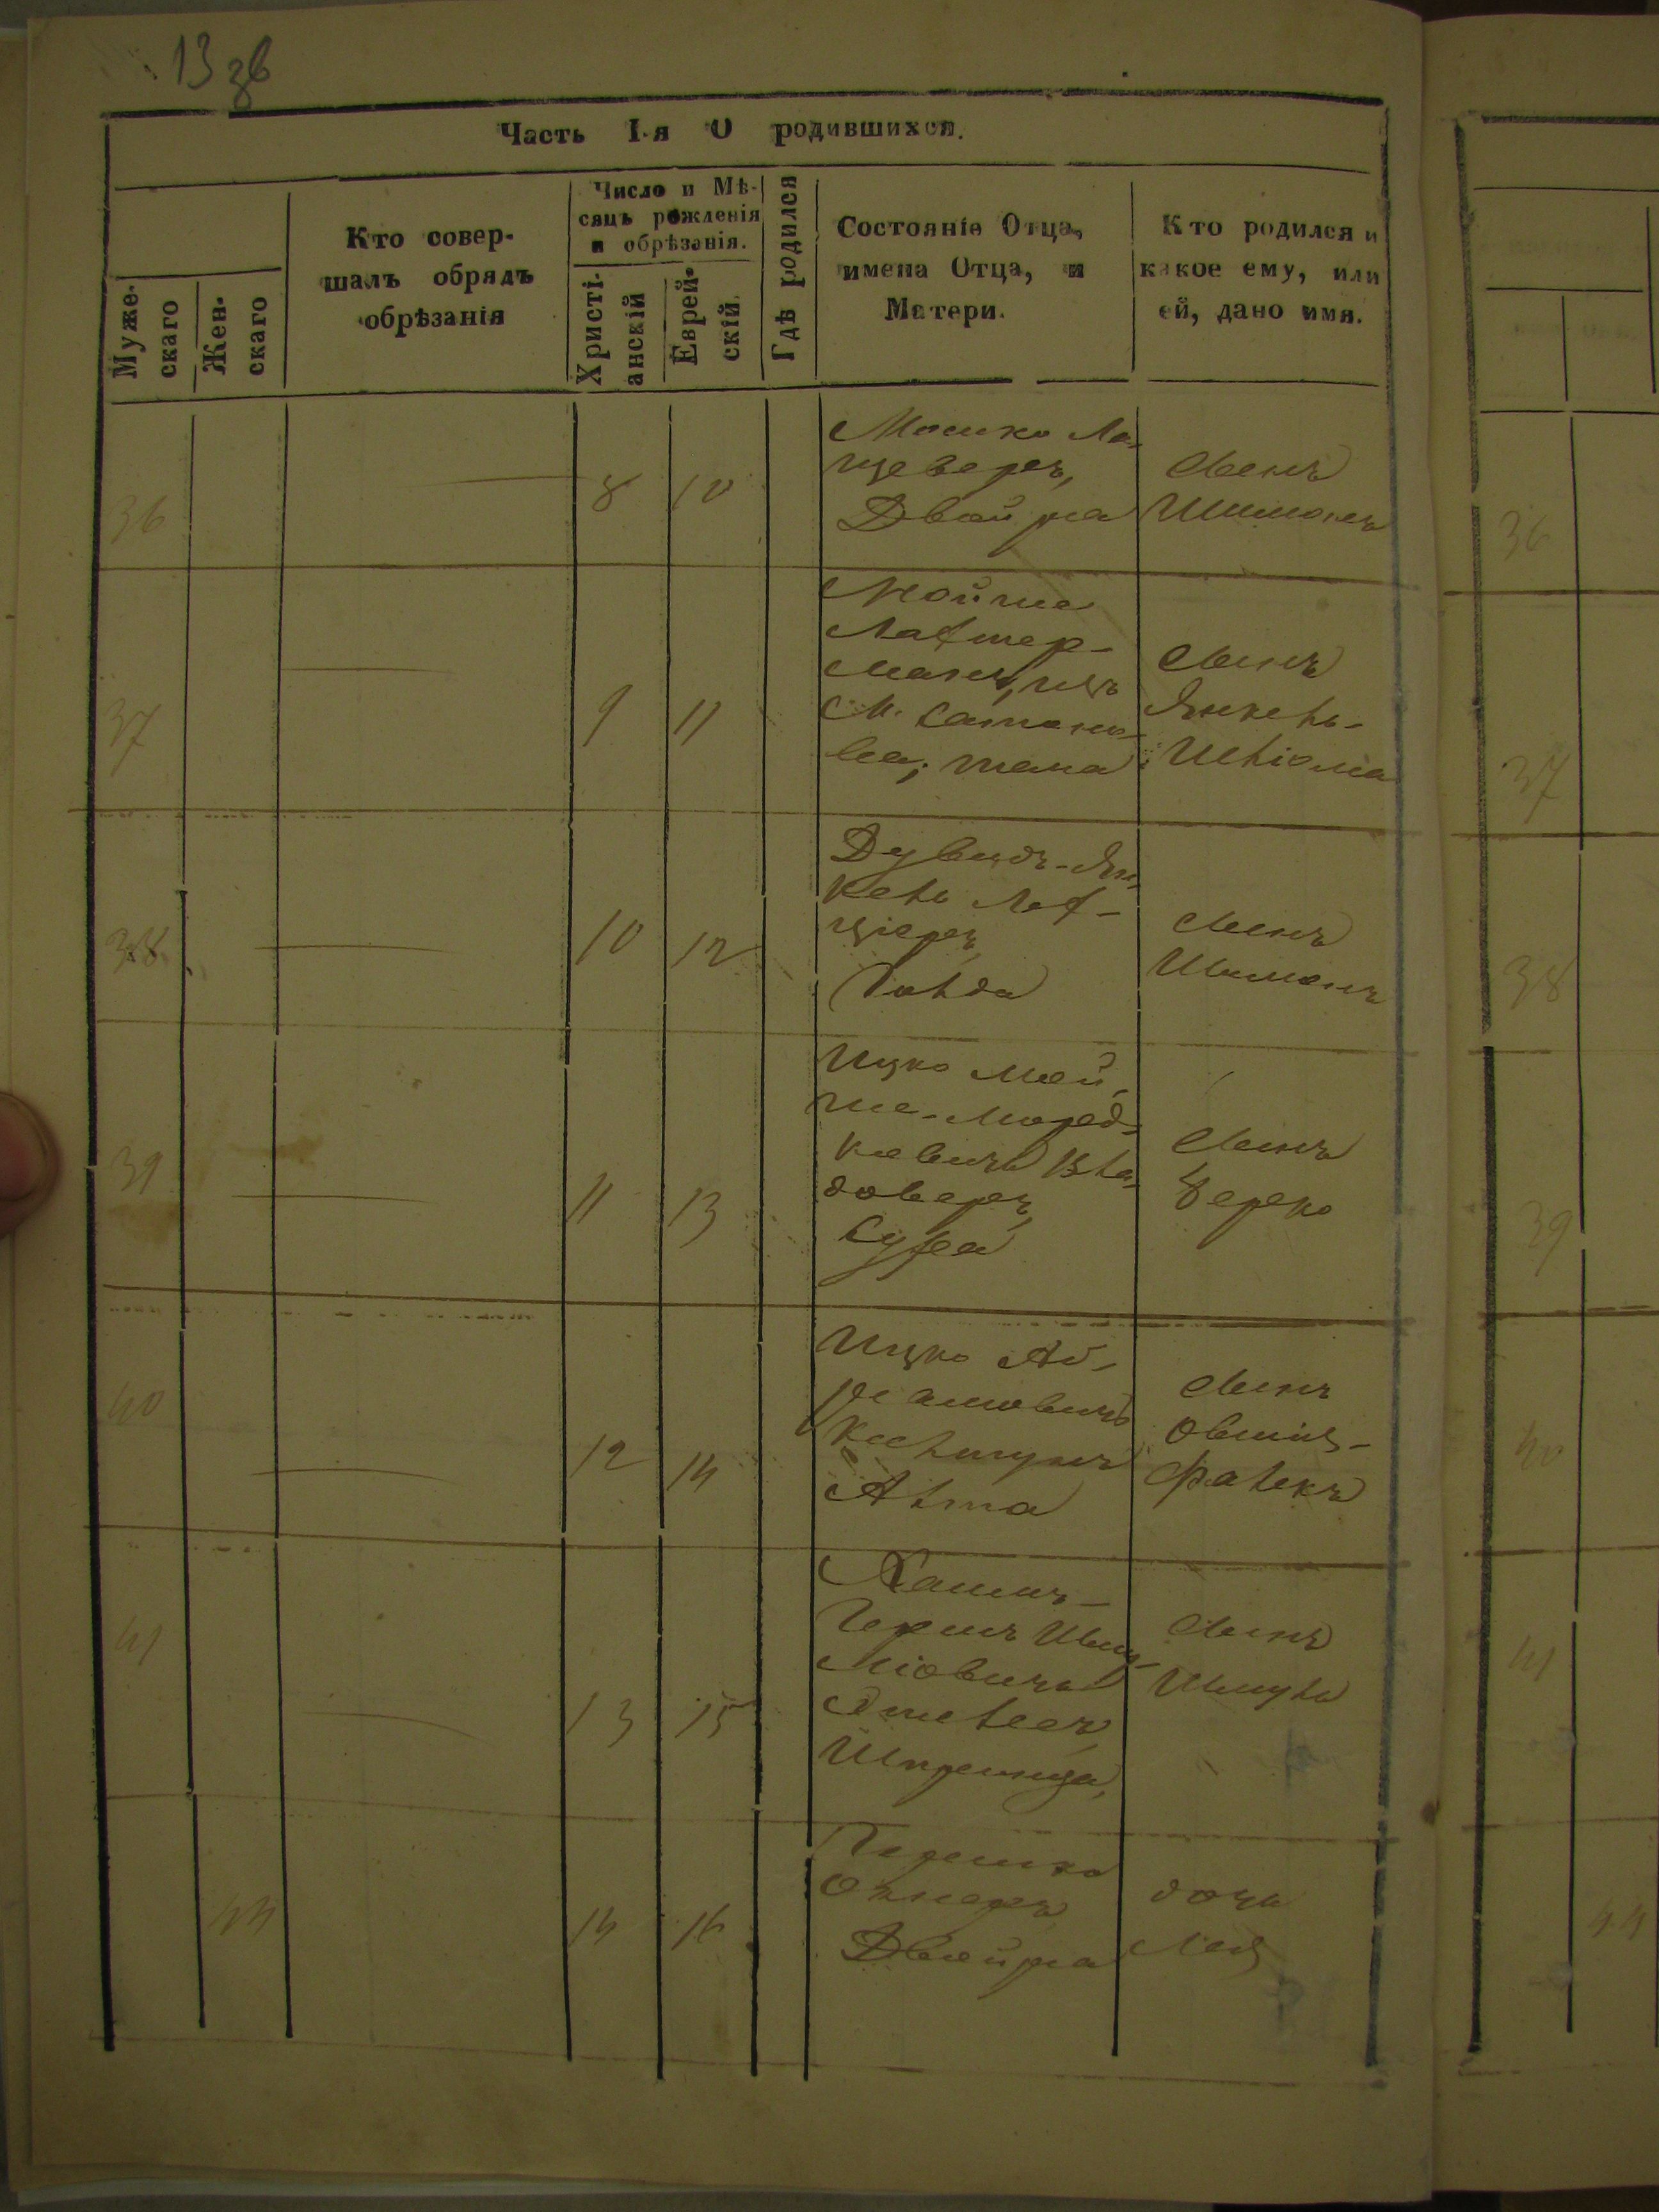 13 зв
Часть I-я О родившихся.
Муже-
скаго
Жен-
скаго
Кто совер-
шалъ обрядъ
обрѣзанія
Число и Мѣ-
сяцъ рожденія
и обрѣзанія.
Христі-
анскій
Еврей-
скій
Гдѣ родился
Состояніе Отца,
имена Отца, и
Матери.
Кто родился и
какое ему, или
ей, дано имя.
36
8
10
Мошко Ла-
щеверъ,
Двойра
Сынъ
Шимонъ
36
37
9
11
Мойше
Лахтер-
манъ, изъ
М. Сатано-
ва;
Сынъ
Янкель-
Шліома
37
38
10
12
Дувидъ-Ян-
кель
Голда
Сынъ
Шимонъ
38
39
11
13
Ицко Мой-
ше-Морд-
ковичъ Вла-
доверъ
Сура
Сынъ
Берко
39
40
12
14
Ицко Аб-
рамовичъ
Алта
Сынъ
Овшія-
Фалекъ
40
41
13
15
Хаимъ-
Гершъ Шму-
ліовичъ
Шпринца,
Сынъ
Шмуль
41
44
14
16
Гершко
Двойра
дочь
Лея
44